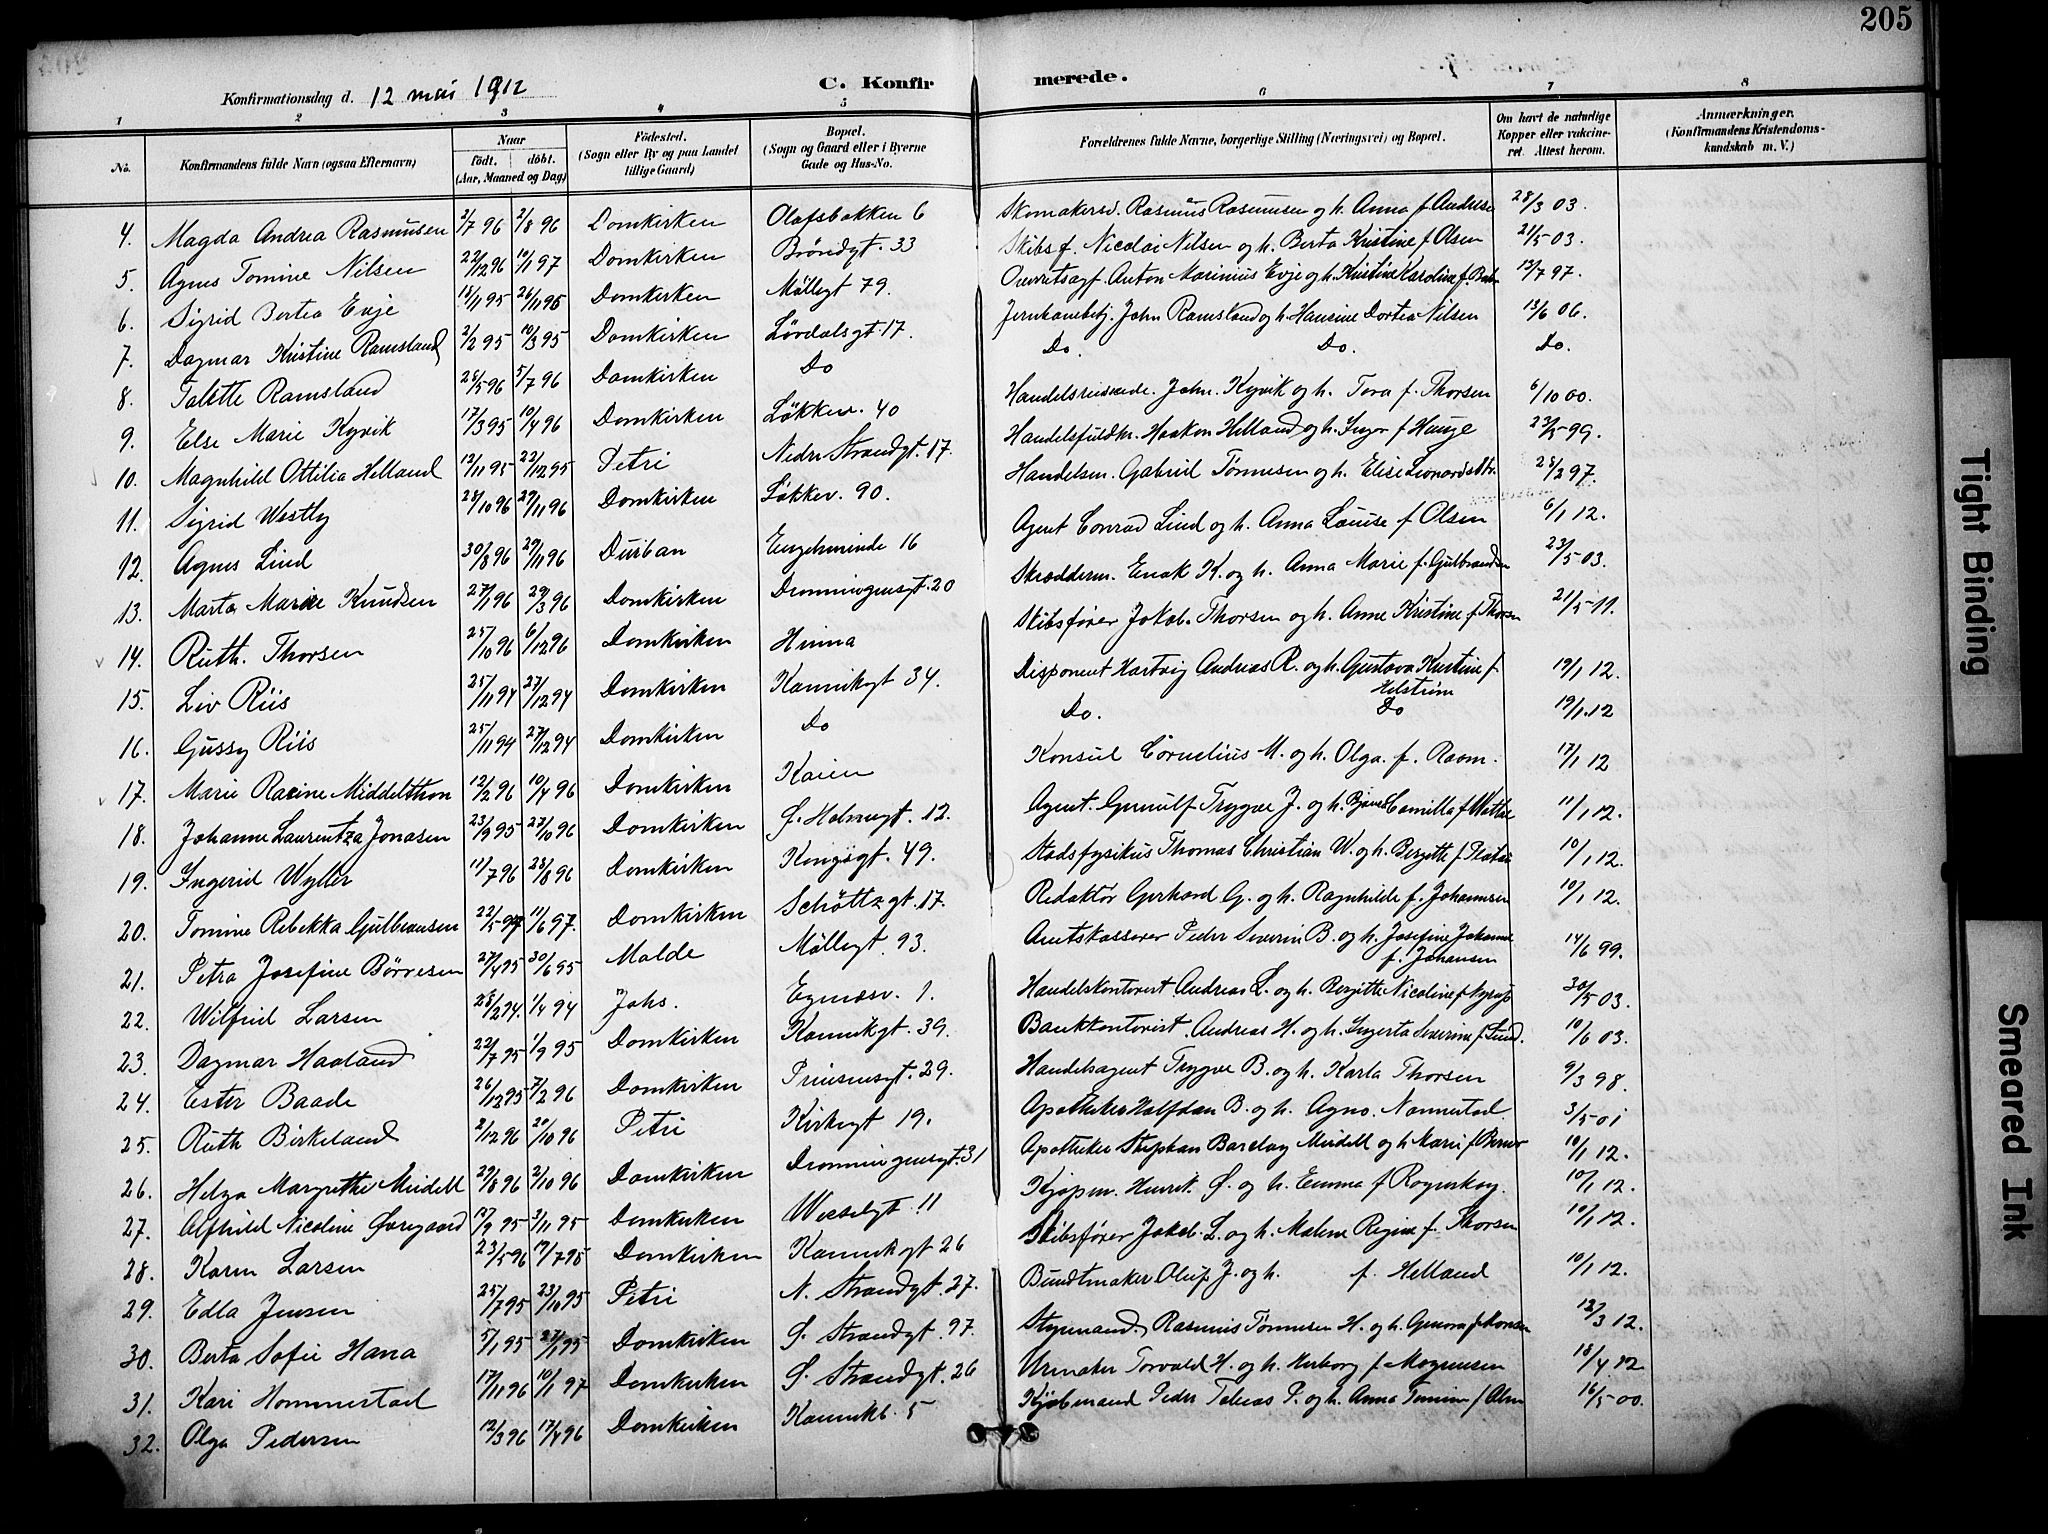 205
Konfirmationsdag d. 12 mai 1912
C. Konfirmerede.
1 2 3 4 5 6 7 8
No. Konfirmandens fulde Navn (ogsaa Efternavn) Naar født. døbt. (Aar, Maaned og Dag) Fødested. (Sogn eller By og paa Landet tillige Gaard) Bopæl. (Sogn og Gaard eller i Byerne Gade og Hus-No. Forældrenes fulde Navne, borgerlige Stilling (Næringsvei) og Bopæl. Om havt de naturlige Kopper eller vakcineret. Attest herom. Anmærkninger. (Konfirmandens Kristendomskundskab m. V.)
4. Magda Andrea Rasmussen 2/7 96 2/8 96 Domkirken Olafsbakken 6 Skomakersv. Rasmus Rasmussen og h. Anna f. 28/3 03.
5. Agnes Tomine Nilsen 22/12 96 10/1 97 Domkirken Brøndgt. 33 Skibsf. Nicolai Nilsen og h. Berta Kristine f Olsen 21/5 03.
6. Sigrid Bertea Evje 18/11 95 26/11 95 Domkirken Møllegt 79. Anton Marinius Evje og h. Kristine Karoline f. 13/7 97.
7. Dagmar Kristine Ramsland 2/2 95 10/3 95 Domkirken Løvdalsgt 17. Jernbanebetj. John Ramsland og h. Hansine Dortea Nilsen 13/6 06.
8. Talette Ramsland 28/5 96 5/7 96 Domkirken Do Do. Do. Do.
9. Else Marie Kyvik 17/3 95 10/4 96 Domkirken Løkkev. 40 Handelsreisende. John. Kyvik og h. Tora f. Thorsen 6/10 00.
10. Magnhild Ottilia Helland 12/11 95 22/12 95 Petri Nedre Strandgt. 17. Handelsfuldm. Haakon Helland og h. Inger f Hauge 23/5 99.
11. Sigrid Westly 28/10 96 29/11 96 Domkirken Løkkev. 90. Handelsm. Gabriel Tønnesen og h. Elise 28/2 97.
12. Agnes Lind 30/8 96 29/11 96 Durban Engelsminde 16 Agent Conrad Lind og h. Anna Louise f Olsen 6/1 12.
13. Marta Marie Knudsen 27/1 96 29/3 96 Domkirken Dronningensgt. 20 Skrædderm. Enok K. og h. Anna Marie f. Gulbrandsen 23/5 03.
14. Ruth. Thorsen 25/10 96 6/12 96 Domkirken Hinna Skibsfører Jakob. Thorsen og h. Anne Kristine f Thorsen 21/5-11.
15. Liv Riis 25/11 94 27/12 94 Domkirken Kannikgt 34. Disponent Hartvig Andreas R. og h. Gustava Kristine f. Helstrøm 19/1 12.
16. Gussy Riis 25/11 94 27/12 94 Domkirken Do Do. Do 19/1.12
17. Marie Racine Middelthon 12/2 96 10/4 96 Domkirken Kaien Konsul Cornelius M. og h. Olga. f. Raom. 17/1 12
18. Johanne Laurentza Jonasen 23/9 95 27/10 96 Domkirken Ø. Holmegt. 12. Agent. Gunulf Trygve J. og h. Camilla f 11/1 12.
19. Ingerid Wyller 11/7 96 28/8 96 Domkirken Kongsgt. 49. Stadsfysikus Thomas Christian W. og h. Bergitte f. 10/1 12.
20. Tomine Rebekka Gulbransen 22/5 97 11/6 97. Domkirken Schøttzgt. 17. Redaktør Gerhard G. og h. Ragnhilde f. Johannesen 10/1 12.
21. Petra Josefine Børresen 27/4 95 30/6 95 Malde Møllegt. 93. Amtskasserer Peder Severin B. og h. Josefine Johanne f. Johansen 14/6 99.
22. Wilfred Larsen 28/2 94. 1/4 94 Johs. Egnæsv. 1. Handelskontorist. Andreas L. og h. Bergitte Nicoline f 30/5 03.
23. Dagmar Haaland 22/7 95 1/9 95 Domkirken Kannikgt. 39. Bankkontorist. Andreas H. og h. Ingerta Severine f Lund. 10/6 03.
24. Ester Baade 26/12 95 7/2 96 Domkirken Prinsensgt. 29. Handelsagent Trygve B. og h. Karla Thorsen 9/3 98.
25. Ruth Birkeland 2/12 96 20/10 96 Petri Kirkegt 19. Apotheker Halfdan B. og h. Agns. Nannestad. 3/5 01
26. Helga Margrethe Meidell 29/8 96 2/10 96 Domkirken Dronningensgt. 31 Apotheker Stephan Barclay Meidell og h Marie f 10/1 12.
27. Alfhild Nicoline Øvregaard 17/9 95 3/11 95 Domkirken Wesselgt. 11 Kjøpm. Henrik. Ø. og h. Emma f Rogneskog. 10/1 12.
28. Karen Larsen 23/5 96 19/7 95 Domkirken Kannikgt 26 Skibsfører Jakob. L. og h. Malene Regine f. Thorsen 10/1 12.
29. Edla Jensen 25/7 95 23/10 95 Petri N. Strandgt. 27. Bundtmaker Oluf J. og h. f. Helland 10/1 12.
30. Berta Sofie Hana 5/1 95 27/1 95 Domkirken Ø. Strandgt. 97. Styrmand, Rasmus Tønnesen H. og h. f 12/3 12.
31. Kari Hommestad 17/11 96 10/1 97 Domkirken Ø. Strandgt. 26 Urmaker Torvald H. og h. Herborg f Mogensen 18/4 12
32. Olga Pedersen 12/3 96 17/4 96 Domkirken Kannikb. 5 Kjøbmand Peder Tobias P. og h. Anna Tomine f 16/5 00.
Tight Binding
Smeared Ink